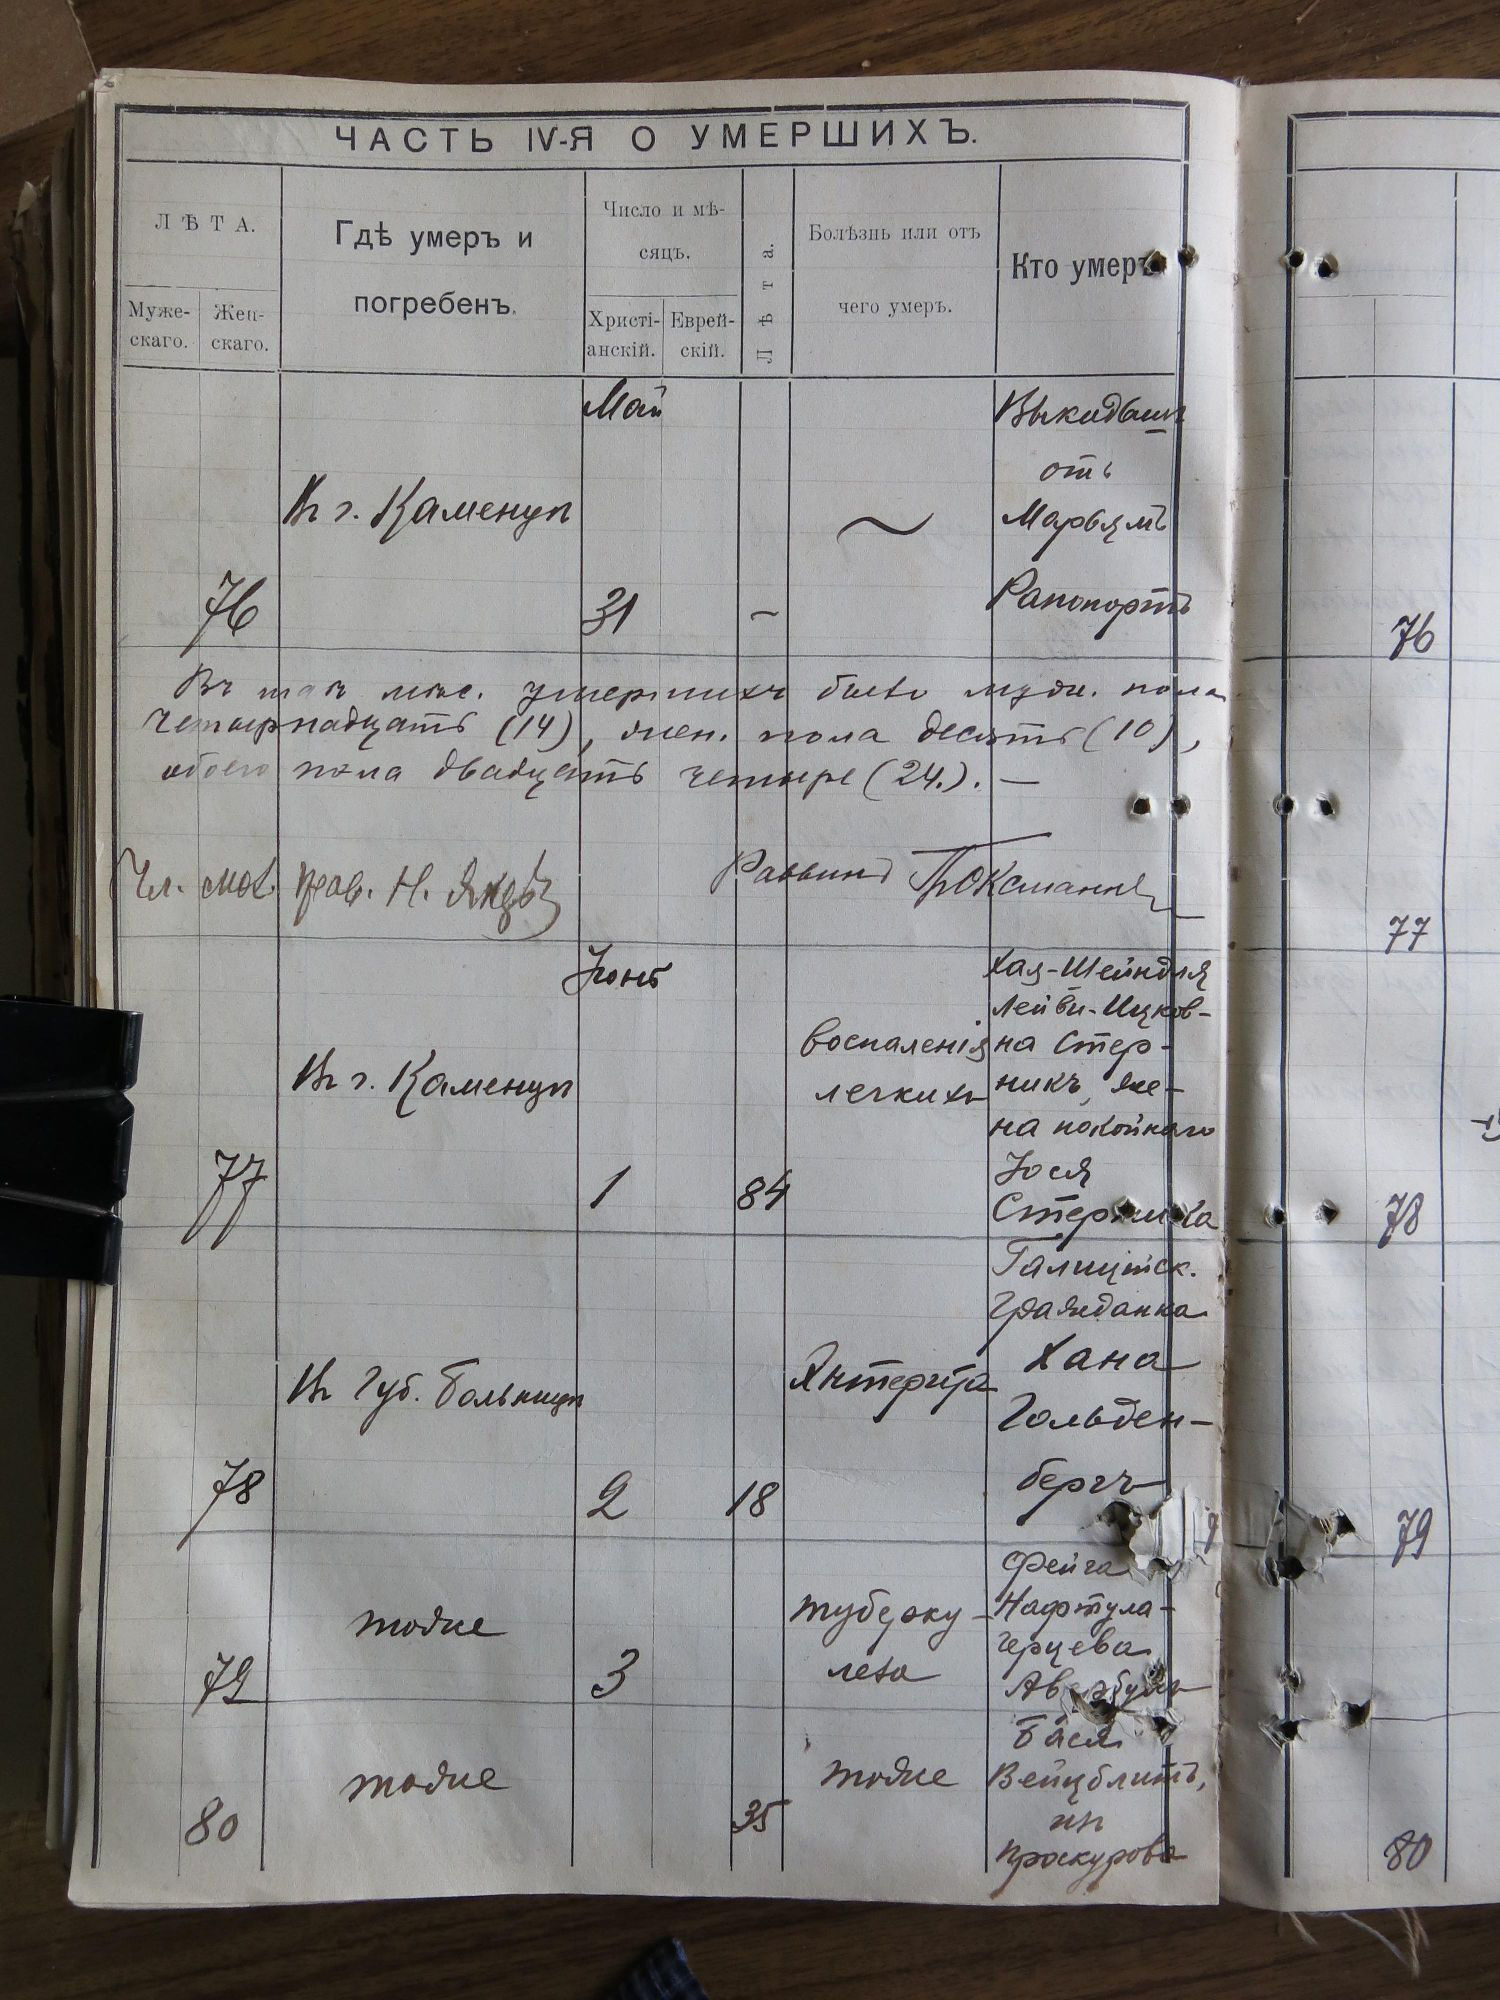 ЧАСТЬ IV-Я О УМЕРШИХЪ.
ЛѢТА.
Муже-
скаго.
Жен-
скаго.
Гдѣ умеръ и
погребенъ.
Число и мѣ-
сяцъ.
Христі-
анскій.
Еврей-
скій.
Лѣта.
Болѣзнь или отъ
чего умеръ.
Кто умеръ
Май
Выкидышъ
отъ
Въ г. Каменцѣ
Марьямъ
76
31
Рапопортъ
76
Въ маѣ мѣс. умершихъ было муж. пола
четырнадцать (14), жен. пола десять (10),
обоего пола двадцать четыре (24.). —
Раввинъ
77
Іюнь
Хая-Шейндля
Лейви-Ицков-
воспаленія
на Стер-
Въ г. Каменцѣ
легкихъ
никъ, же-
на покойнаго
77
1
84
Іося
Стерника
78
Галиційск.
Гражданка
Въ Губ. Больницѣ
Энтеритъ
Хана
Гольден-
78
2
18
бергъ
79
Фейга
тоже
туберку-
Нафтула-
Герцева
79
3
леза
Авербухъ
Бася
тоже
тоже
Вейцблитъ,
80
35
изъ
Проскурова
80